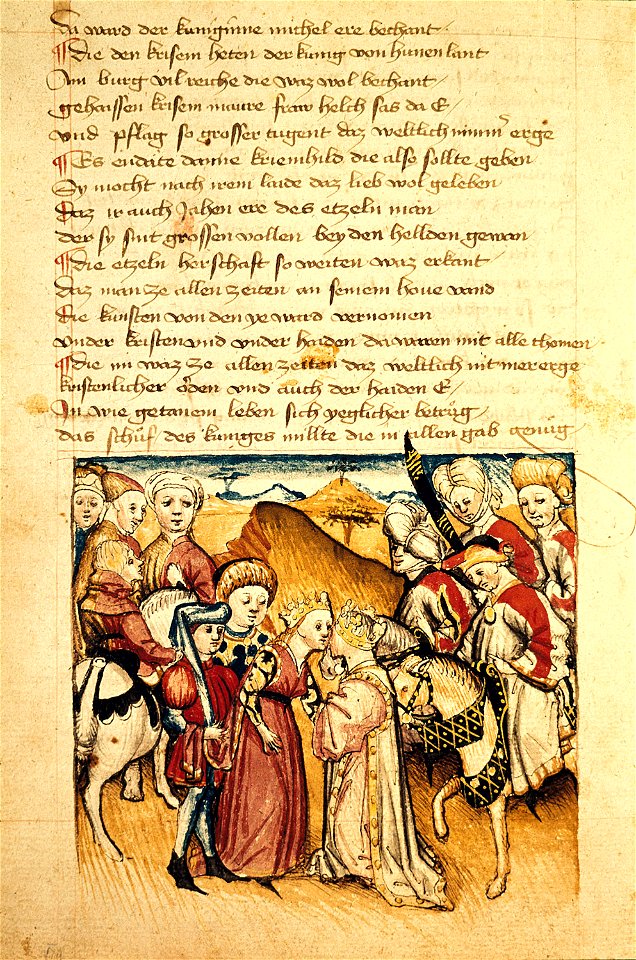 Da ward der kuniginne michel ere bechant
Die den krisem heten der kunig von hunen lant
Ain burg vil reiche die waz wol bechant
gehaissen krisem maure fraw helch sas da E
und pflag so grosser tugent daz weltlich nimmer erge
Es endaite danne kriemhild die also sollte geben
Sy mocht nach irem laide daz lieb wol geleben
Daz ir auch Jahen ere des etzeln man
der sy sint grossen vollen bey den hellden gewan
die etzeln herschaft so weiten waz erkant
daz man ze allen zeiten an seinem houe vand
die kunsten von den ye ward vernomen
under kristen und under haiden da waren mit alle chomen
die im waz ze allen zeiten daz weltlich nit mer erge
kristenlicher orden und auch der haiden E
In wie getanem leben sich yeglicher betrug
das schuf des kuniges millte die in allen gab genug